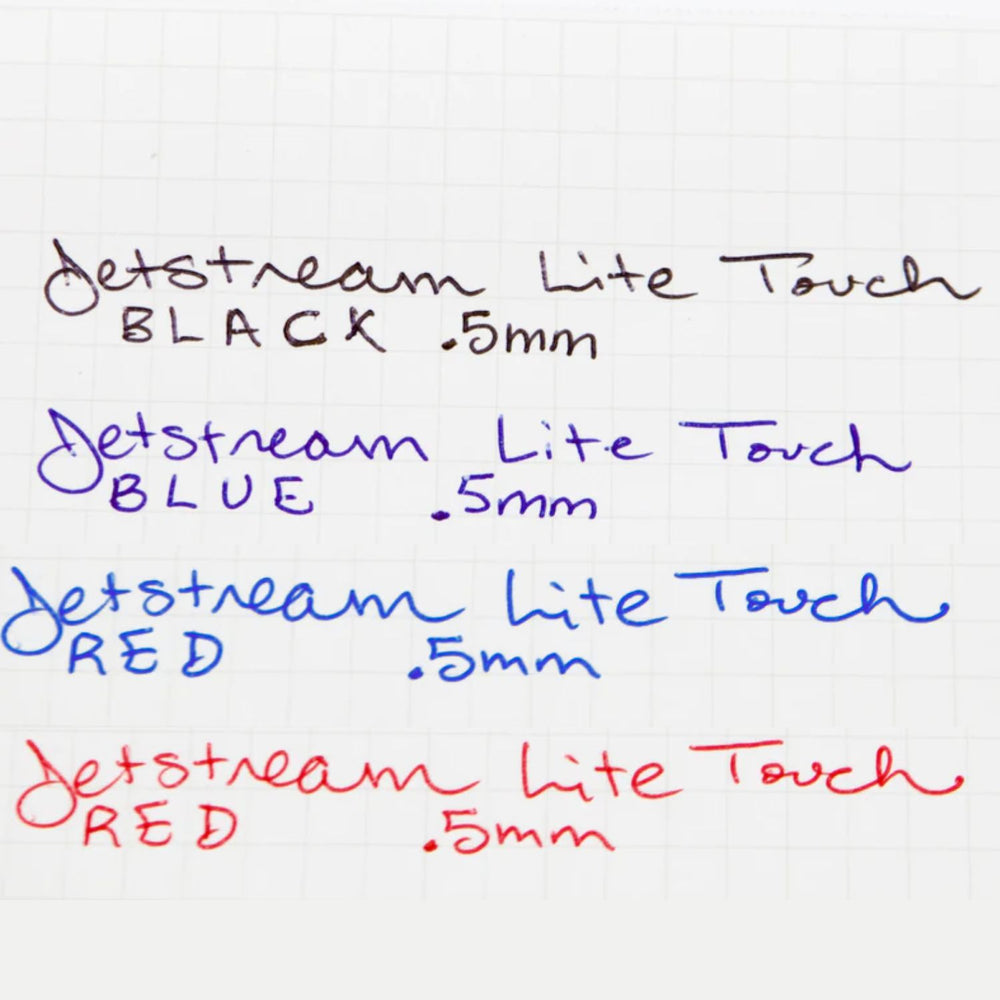 Jetstream Lite Touch
BLACK .5mm
Jetstream Lite Touch
BLUE .5mm
Jetstream Lite Touch
RED .5mm
Jetstream Lite Touch
RED .5mm